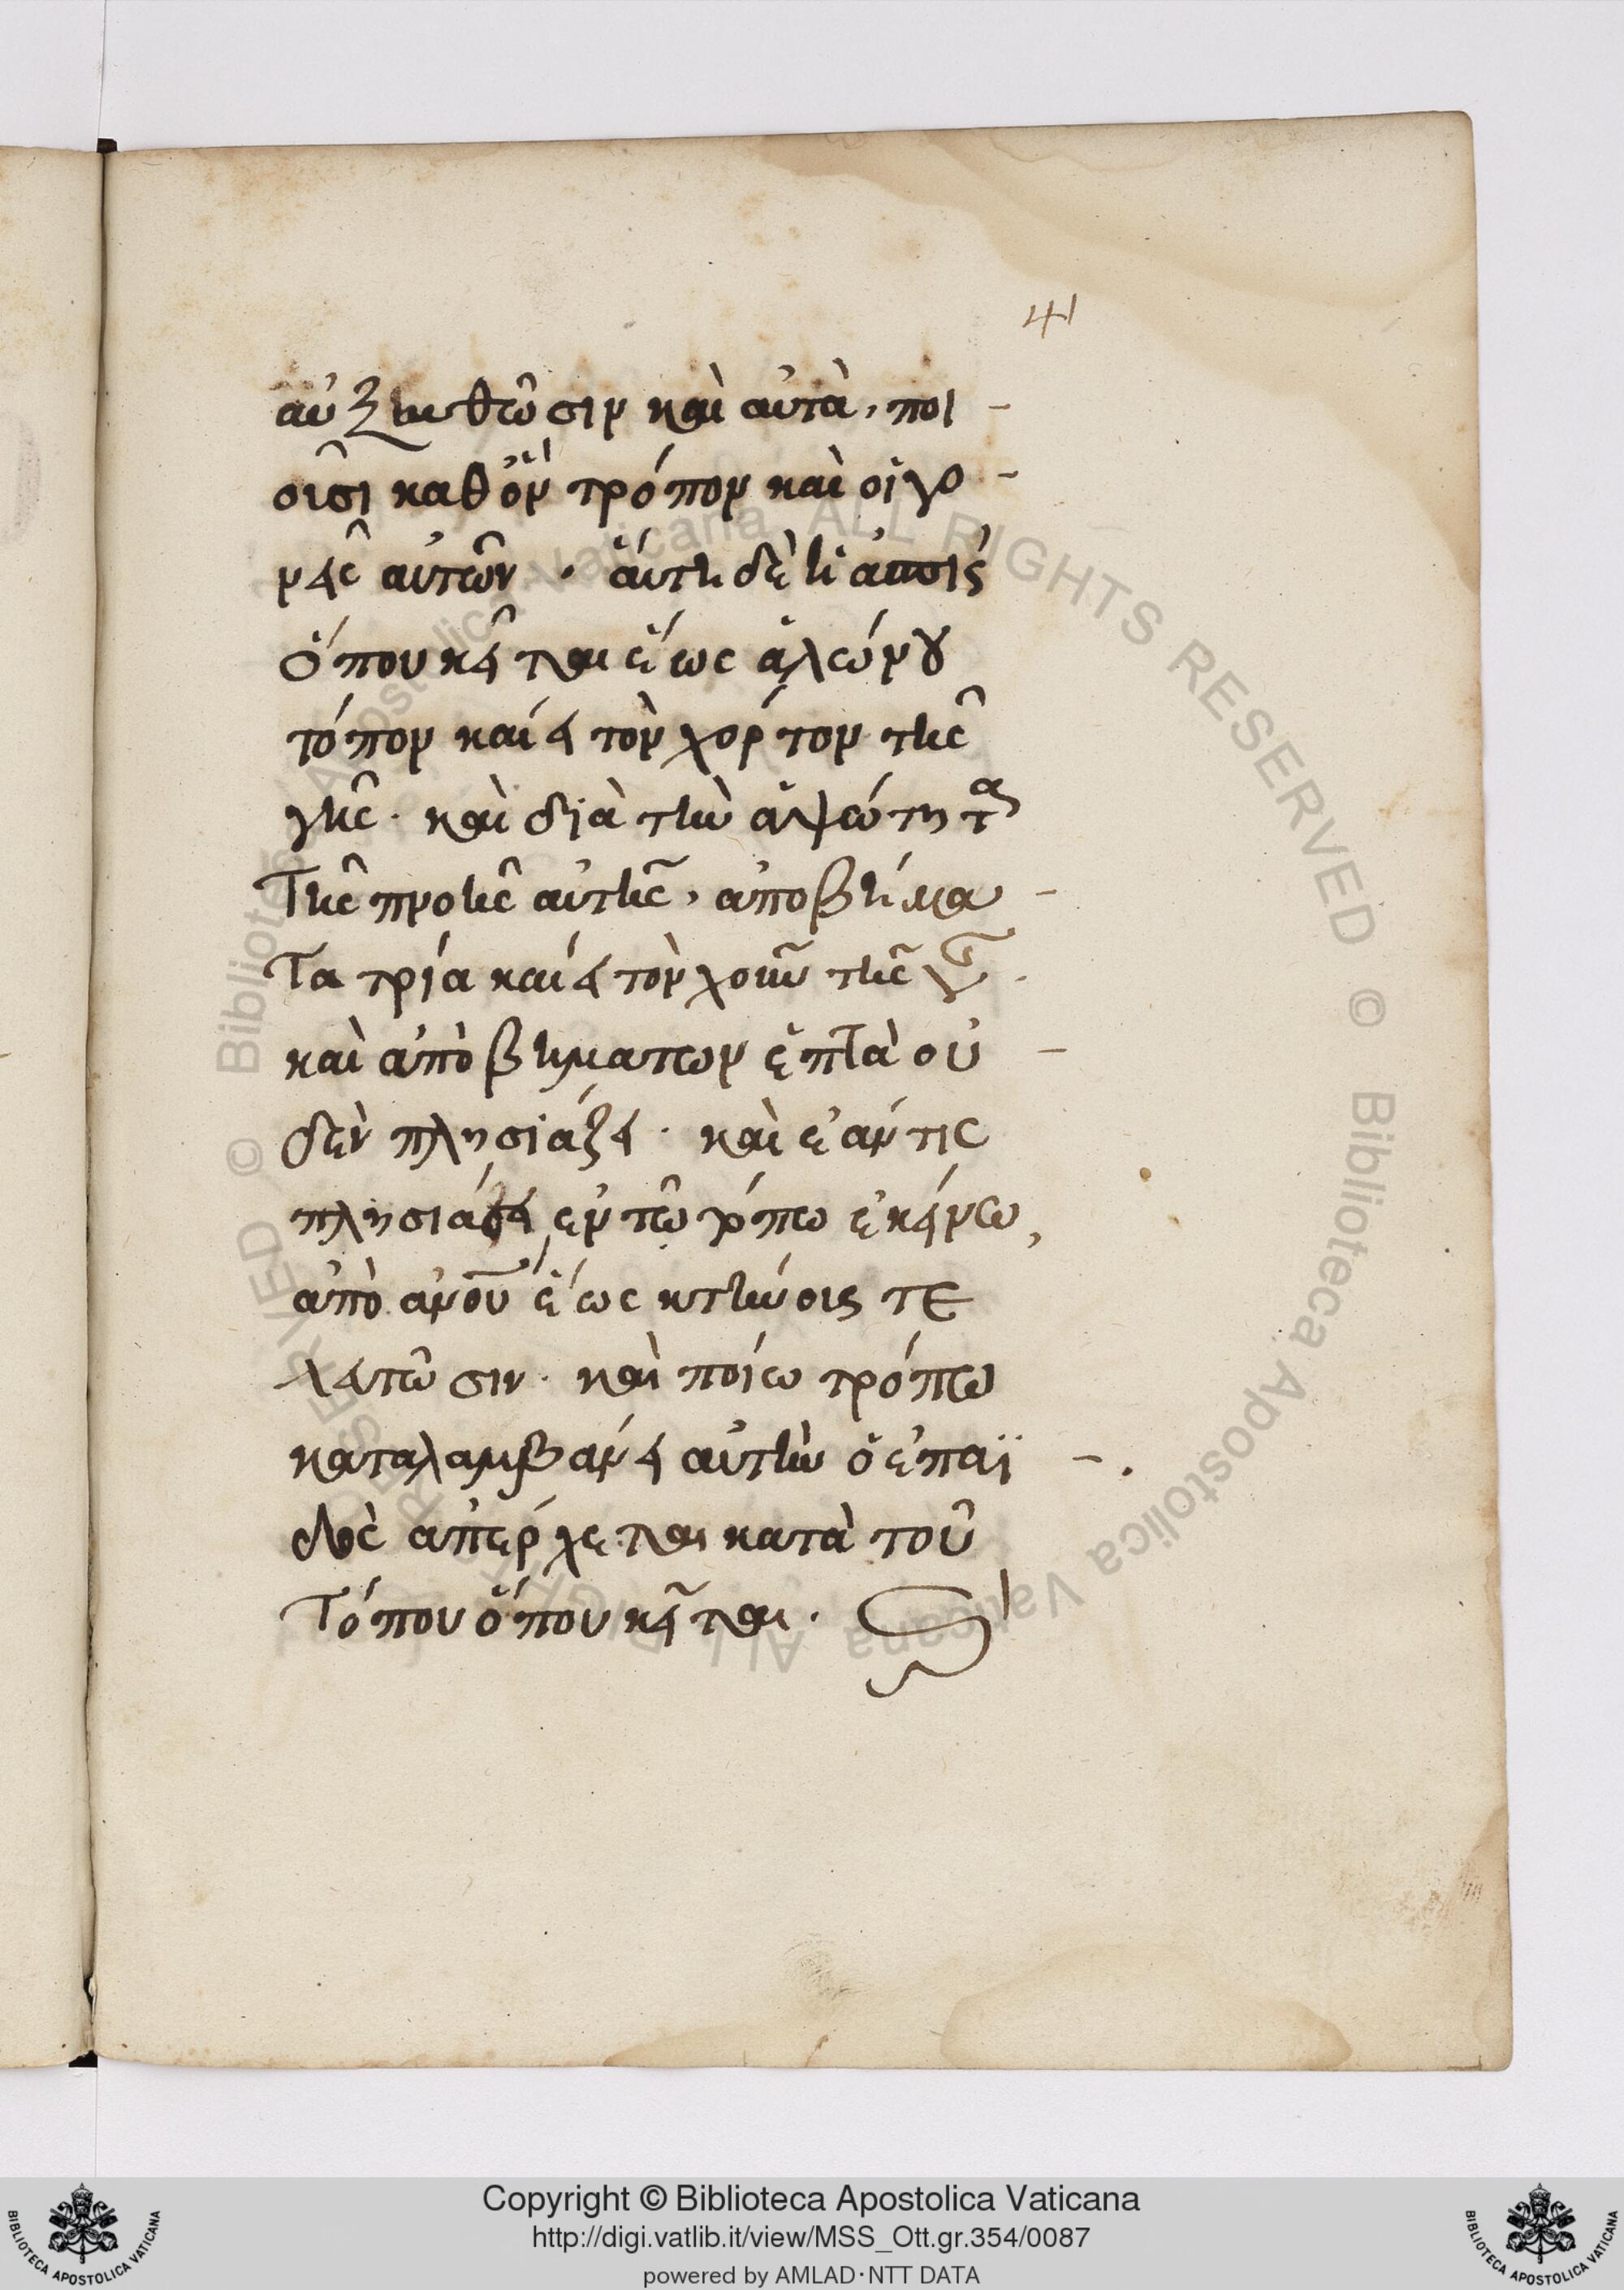 41
αὐξηνθῶσιν καὶ αὐτὰ, ποι -
οῦσι καθ ὃν τρόπον καὶ οἱ γο -
νεῖς αὐτῶν · αὕτη δὲ ἡ ἀσπὶς
ὅπου κεῖται ἕως ἁλώνου
τόπον καίει τὸν χόρτον τῆς
γῆς · καὶ διὰ τὴν ἁψώτητα
τῆς πνοῆς αὐτῆς, ἀπὸ βήμα -
τα τρία καίει τὸν χοῦν τῆς γῆς ·
καὶ ἀπὸ βημάτων ἑπτὰ οὐ -
δεὶς πλησιάζει · καὶ ἐάν τις
πλησιάσει ἐν τῶ τόπω ἐκείνω,
ἀπὸ ἀνοῦ ἕως κτήνοις τε
λευτῶσιν · καὶ ποίω τρόπω
καταλαμβάνει αὐτὴν ὁ ἐπαϊ -
δὸς ἀπέρχεται κατὰ τοῦ
τόπου ὅπου κεῖται ·
Copyright © Biblioteca Apostolica Vaticana
http://digi.vatlib.it/view/MSS_Ott.gr.354/0087
powered by AMLAD·NTT DATA
BIBLIOTECA APOSTOLICA VATICANA
BIBLIOTECA APOSTOLICA VATICANA
© Biblioteca Apostolica Vaticana ALL RIGHTS RESERVED © Biblioteca Apostolica Vaticana ALL RIGHTS RESERVED